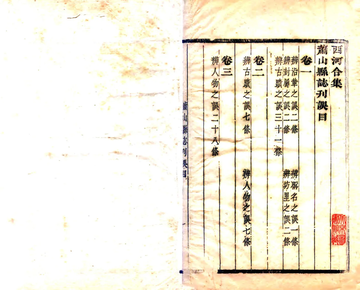 西河合集
蕭山縣誌刊誤目
卷一
辨沿革之誤二條 辨縣名之誤一條
辨封屬之誤二條 辨坊里之誤二條
辨古蹟之誤三十一條
卷二
辨古蹟之誤七條 辨人物之誤七條
卷三
辨人物之誤二十八條
蕭山縣誌刊誤目